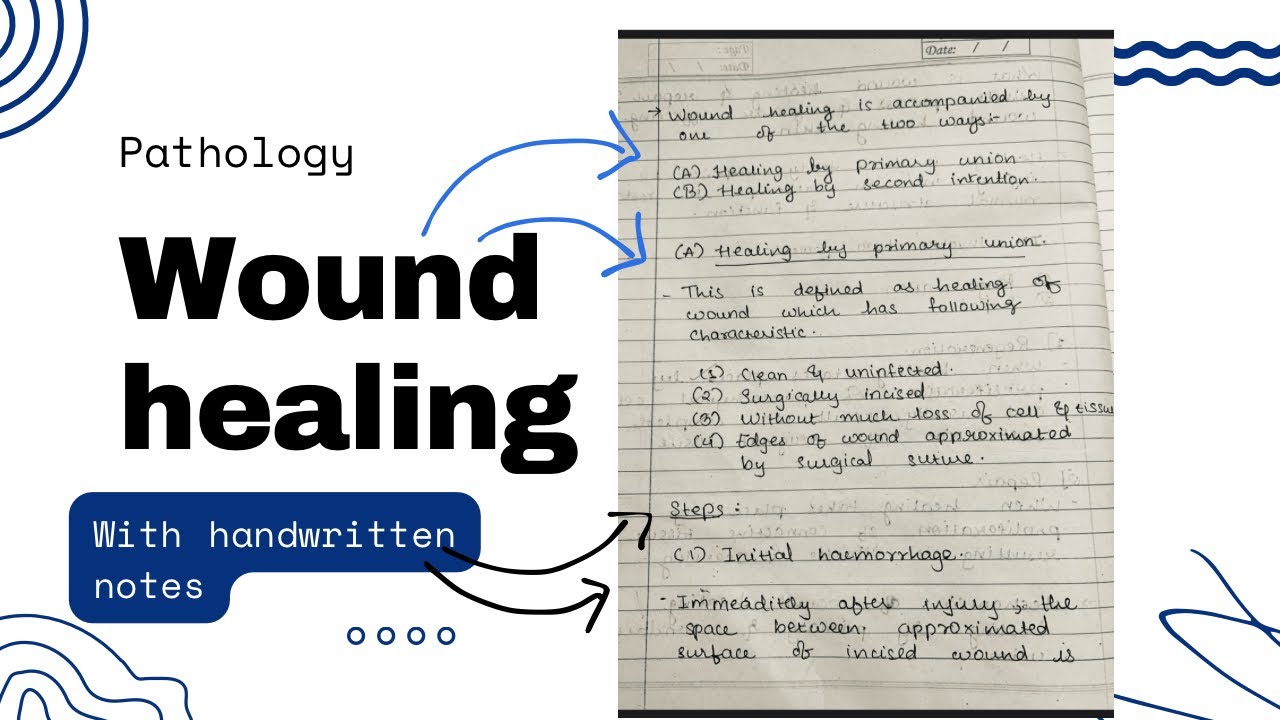 Pathology
Wound
healing
With handwritten
notes
Date: / /
→ Wound healing is accompanied by
one of the two ways:-
(A) Healing by primary union.
(B) Healing by second intention.
(A) Healing by primary union.
- This is defined as healing of
wound which has following
characteristic.
(1) Clean & uninfected.
(2) Surgically incised
(3) Without much loss of cell & tissu
(4) Edges of wound approximated
by surgical suture.
Steps :
(1) Initial haemorrhage.
- Immeaditely after injury, the
space between approximated
surface of incised wound is